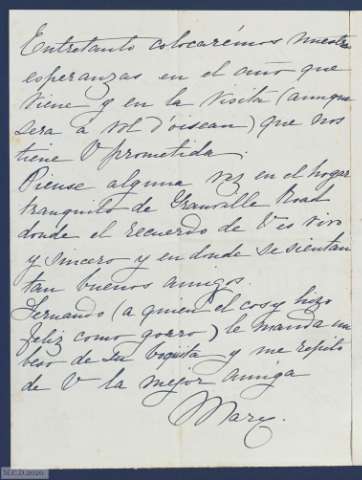 Entretanto colocarémos nuestras
esperanzas en el año que
viene y en la visita (aunque
sera a vol d'oiseau) que nos
tiene V prometida.
Piense alguna vez en el hogar
tranquilo de Granville Road
donde el recuerdo de V es vivo
y sincero y en donde se sientan
tan buenos amigos.
Fernando (a quien el cosy hizo
feliz como gorro) le manda un
beso de su boquita y me repito
de V la mejor amiga
Mary.